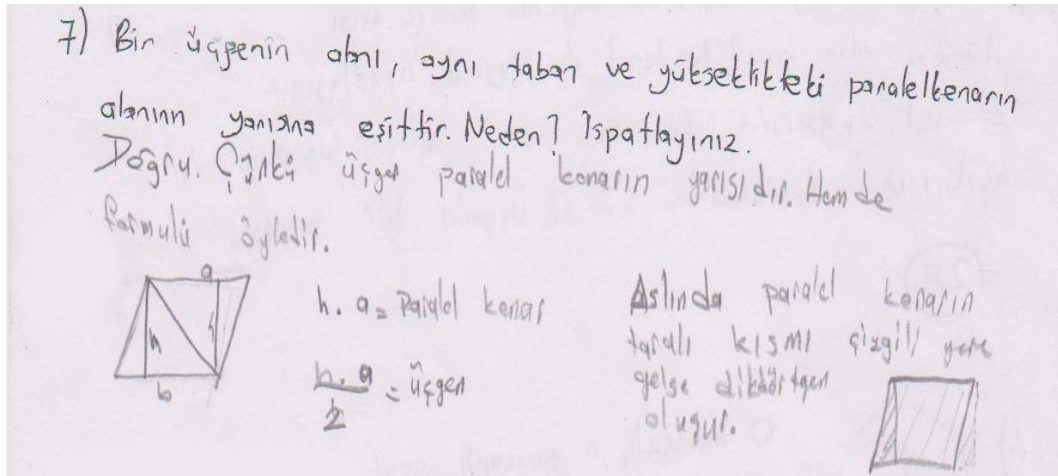 7) Bir üçgenin alanı, aynı taban ve yükseklikteki paralelkenarın
alanının yarısına eşittir. Neden? İspatlayınız.
Doğru. Çünkü üçgen paralel kenarın yarısıdır. Hem de
formülü öyledir.
a
h
h
b
h. a = Paralel kenar
h. a
2
= üçgen
Aslında paralel kenarın
taralı kısmı çizgili yere
gelse dikdörtgen
oluşur.